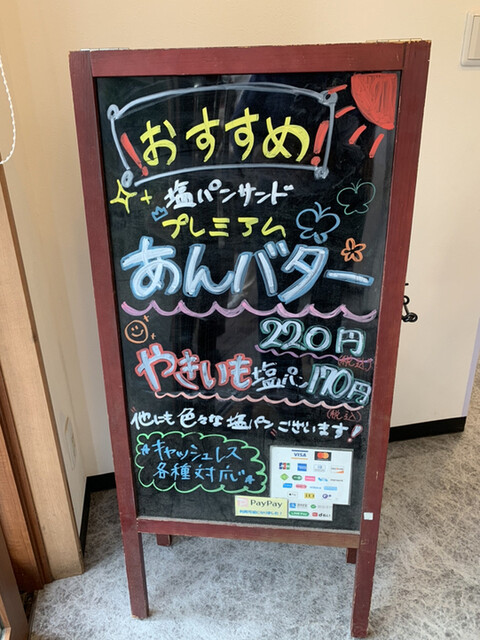 !おすすめ!
塩パンサンド
プレミアム
あんバター
220円
(税込)
やきいも塩パン170円
(税込)
他にも色々な塩パンございます!
キャッシュレス
各種対応
VISA
PayPay